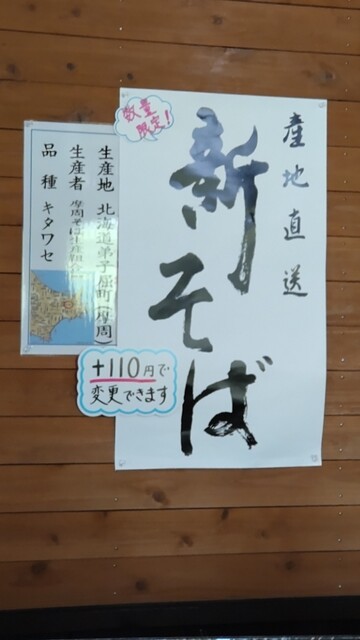 数量
限定!
産地直送
新そば
生産地 北海道弟子屈町(摩周)
生産者 摩周そば生産組合
品種 キタワセ
+110円で
変更できます